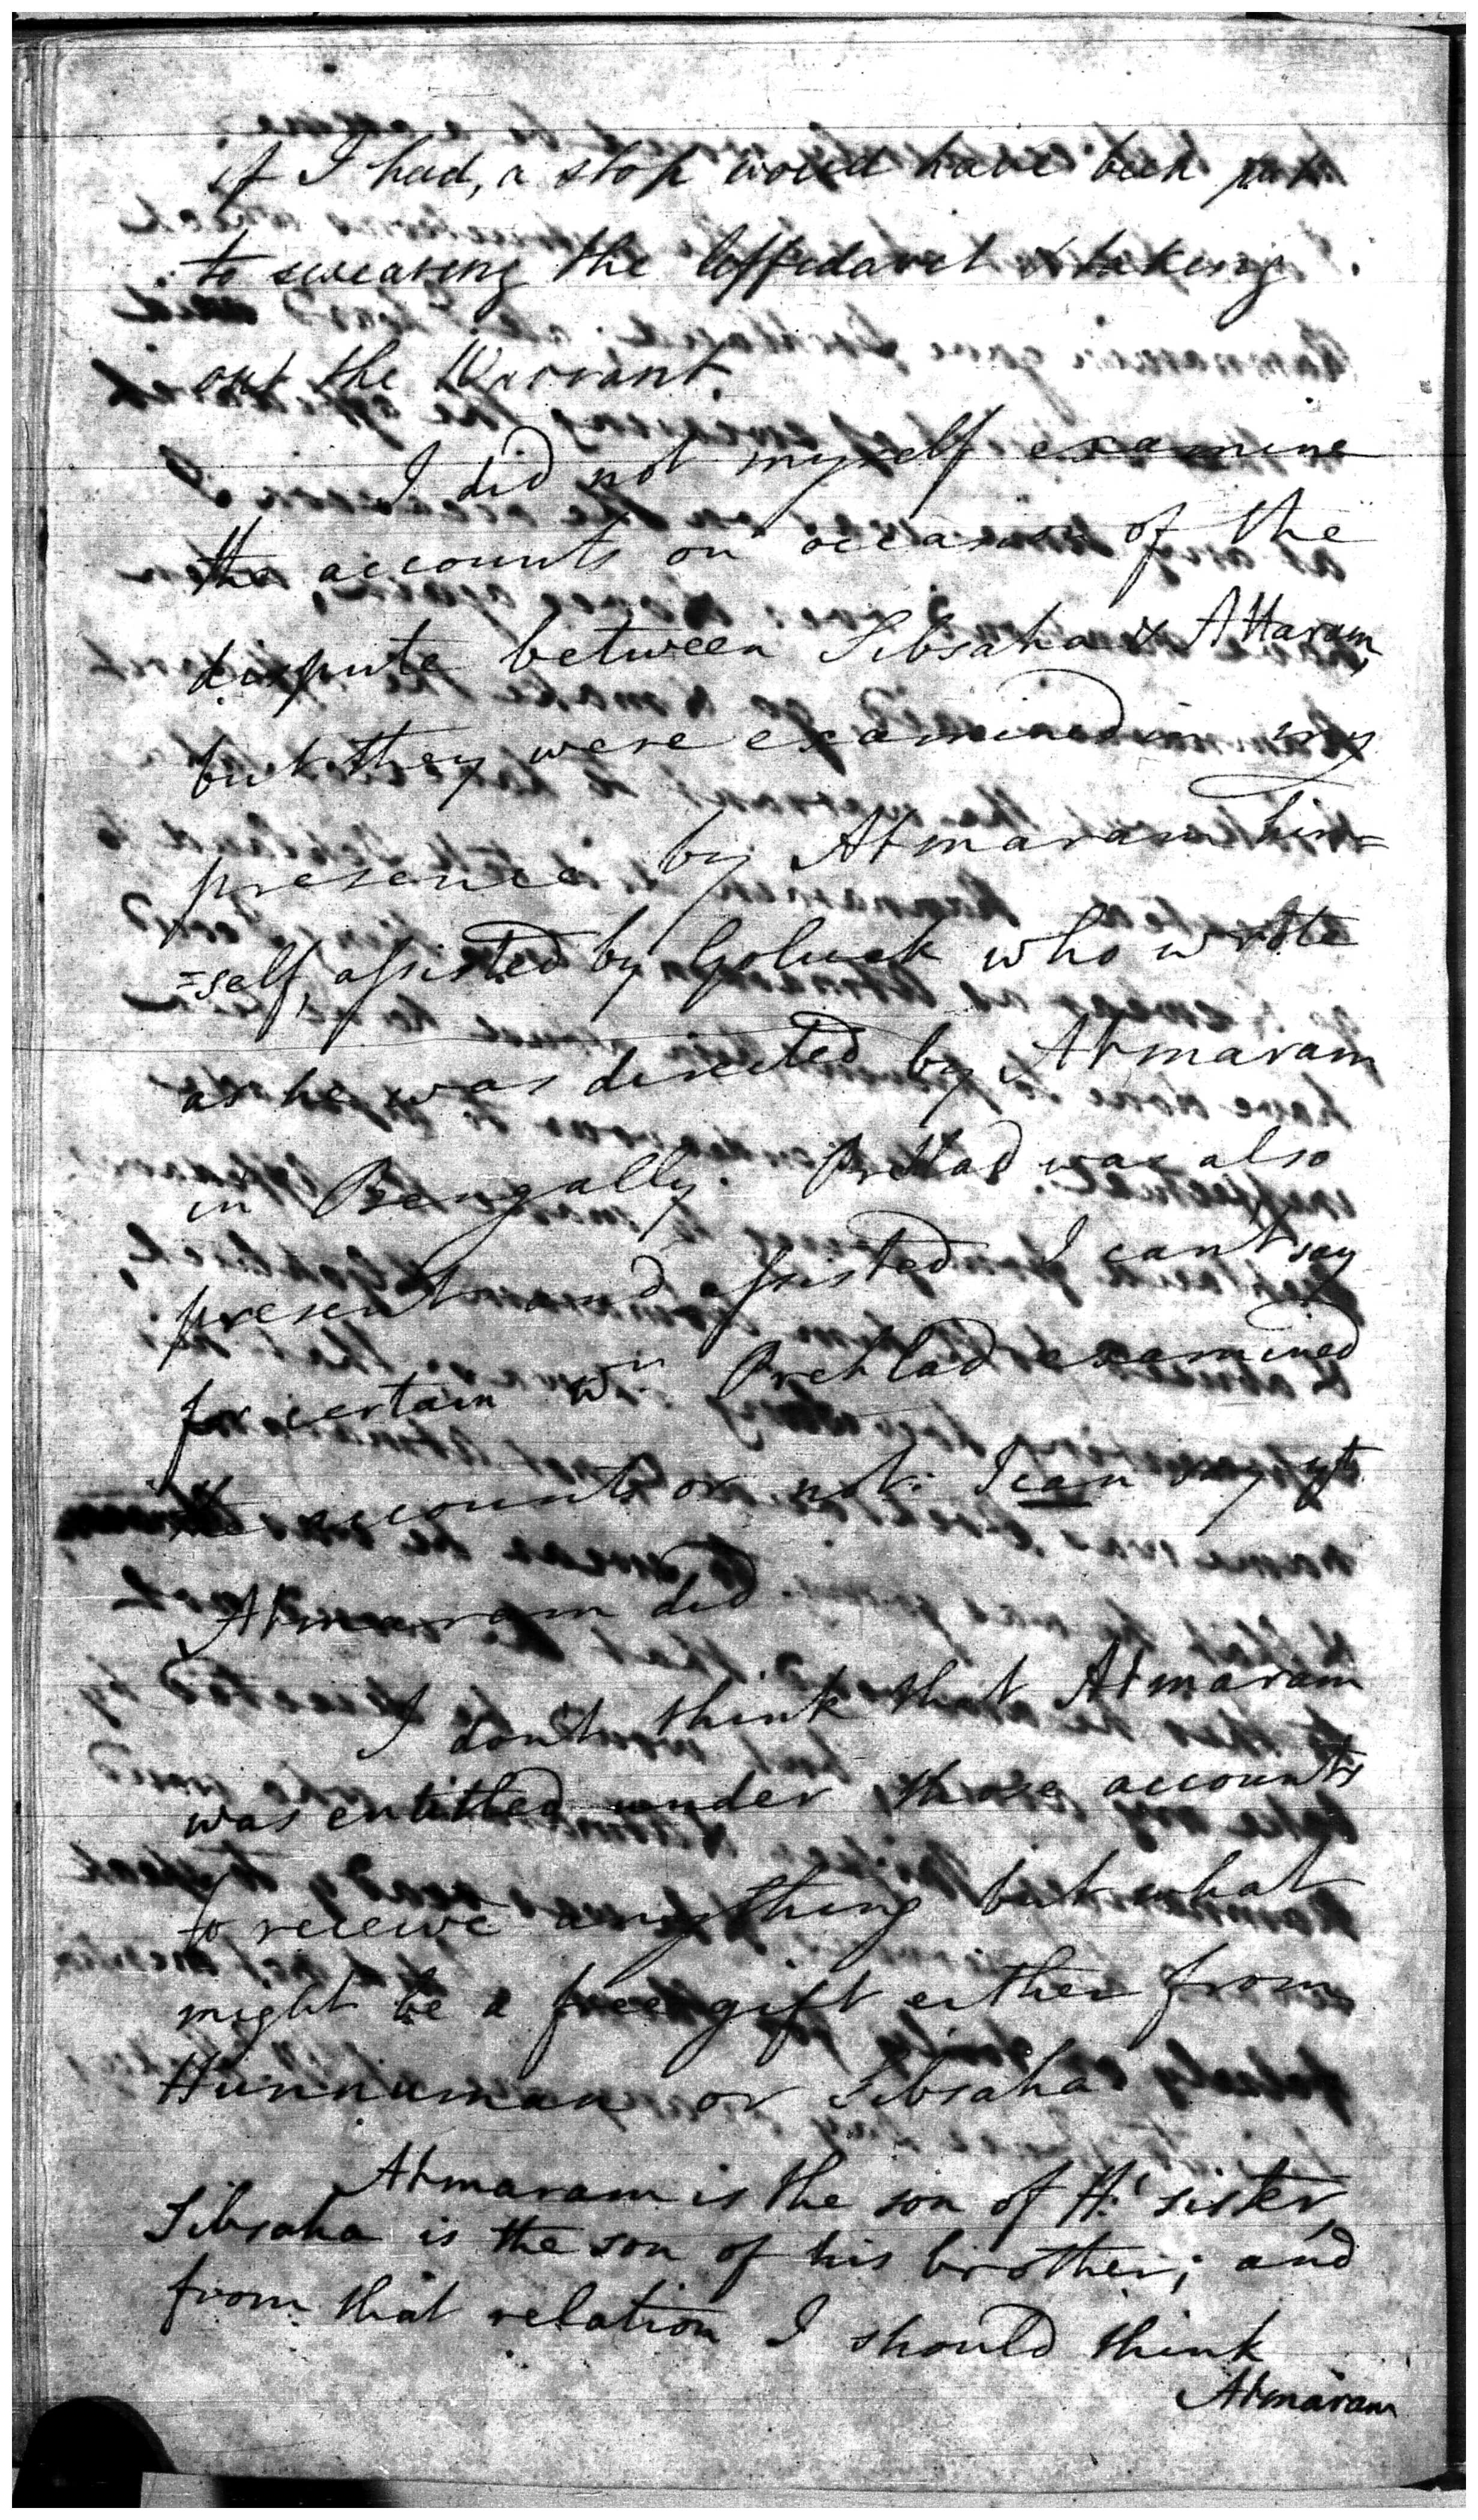 if I had, a stop would have been put
to swearing the Affidavit & taking
out the Warrant.
I did not myself examine
the accounts on occasion of the
dispute between Sibsaha & Attaram,
but they were examined in my
presence by Atmaram him=
=self, assisted by Goluck who wrote
as he was directed by Atmaram
in Bengally. Prehlad was also
present and assisted I cant say
for certain wr. Prehlad examined
the accounts or not: I can say yt.
Atmaram did
I don't think that Atmaram
was entitled under those accounts
to receive any thing but what
might be a free gift either from
Hunnuman or Sibsaha
Atmaram is the son of H:' sister,
Sibsaha is the son of his brother; and
from that relation I should think
Atmaram